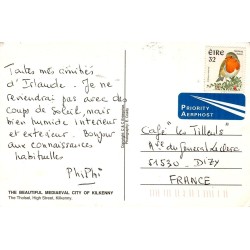 Toutes mes amitiés
d'Irlande. Je ne
reviendrai pas avec des
coups de soleil, mais
bien humide interieur
et exterieur. Bonjour
aux connaissances
habituelles
PhiPhi
THE BEAUTIFUL MEDIAEVAL CITY OF KILKENNY
The Tholsel, High Street, Kilkenny.
ÉIRE
32
PRIORITY
AERPHOST
Café "les Tilleuls"
du General Leclerc
51530 - DIZY
FRANCE